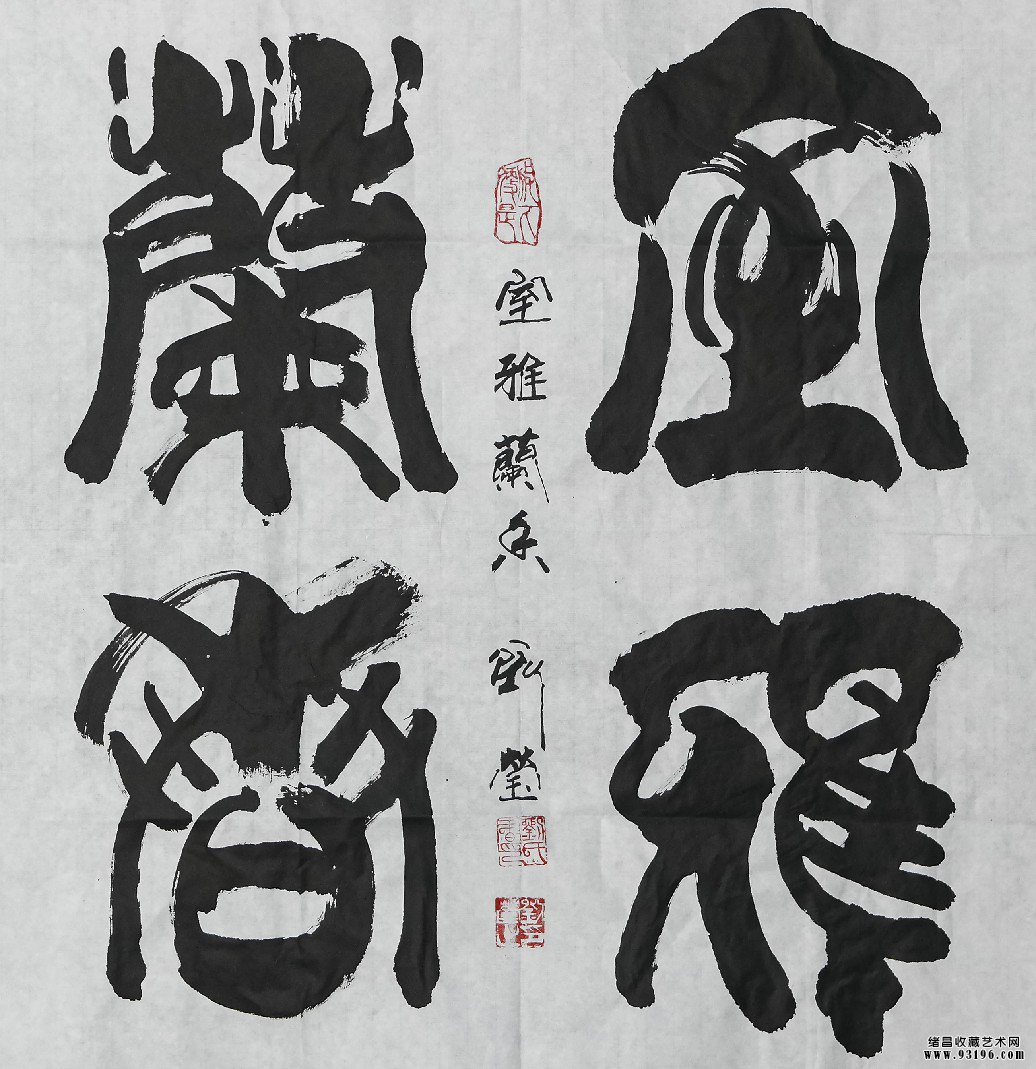 室雅
蘭香
室雅蘭香 劉瑩
劉氏
绪昌收藏艺术网
www.93196.com